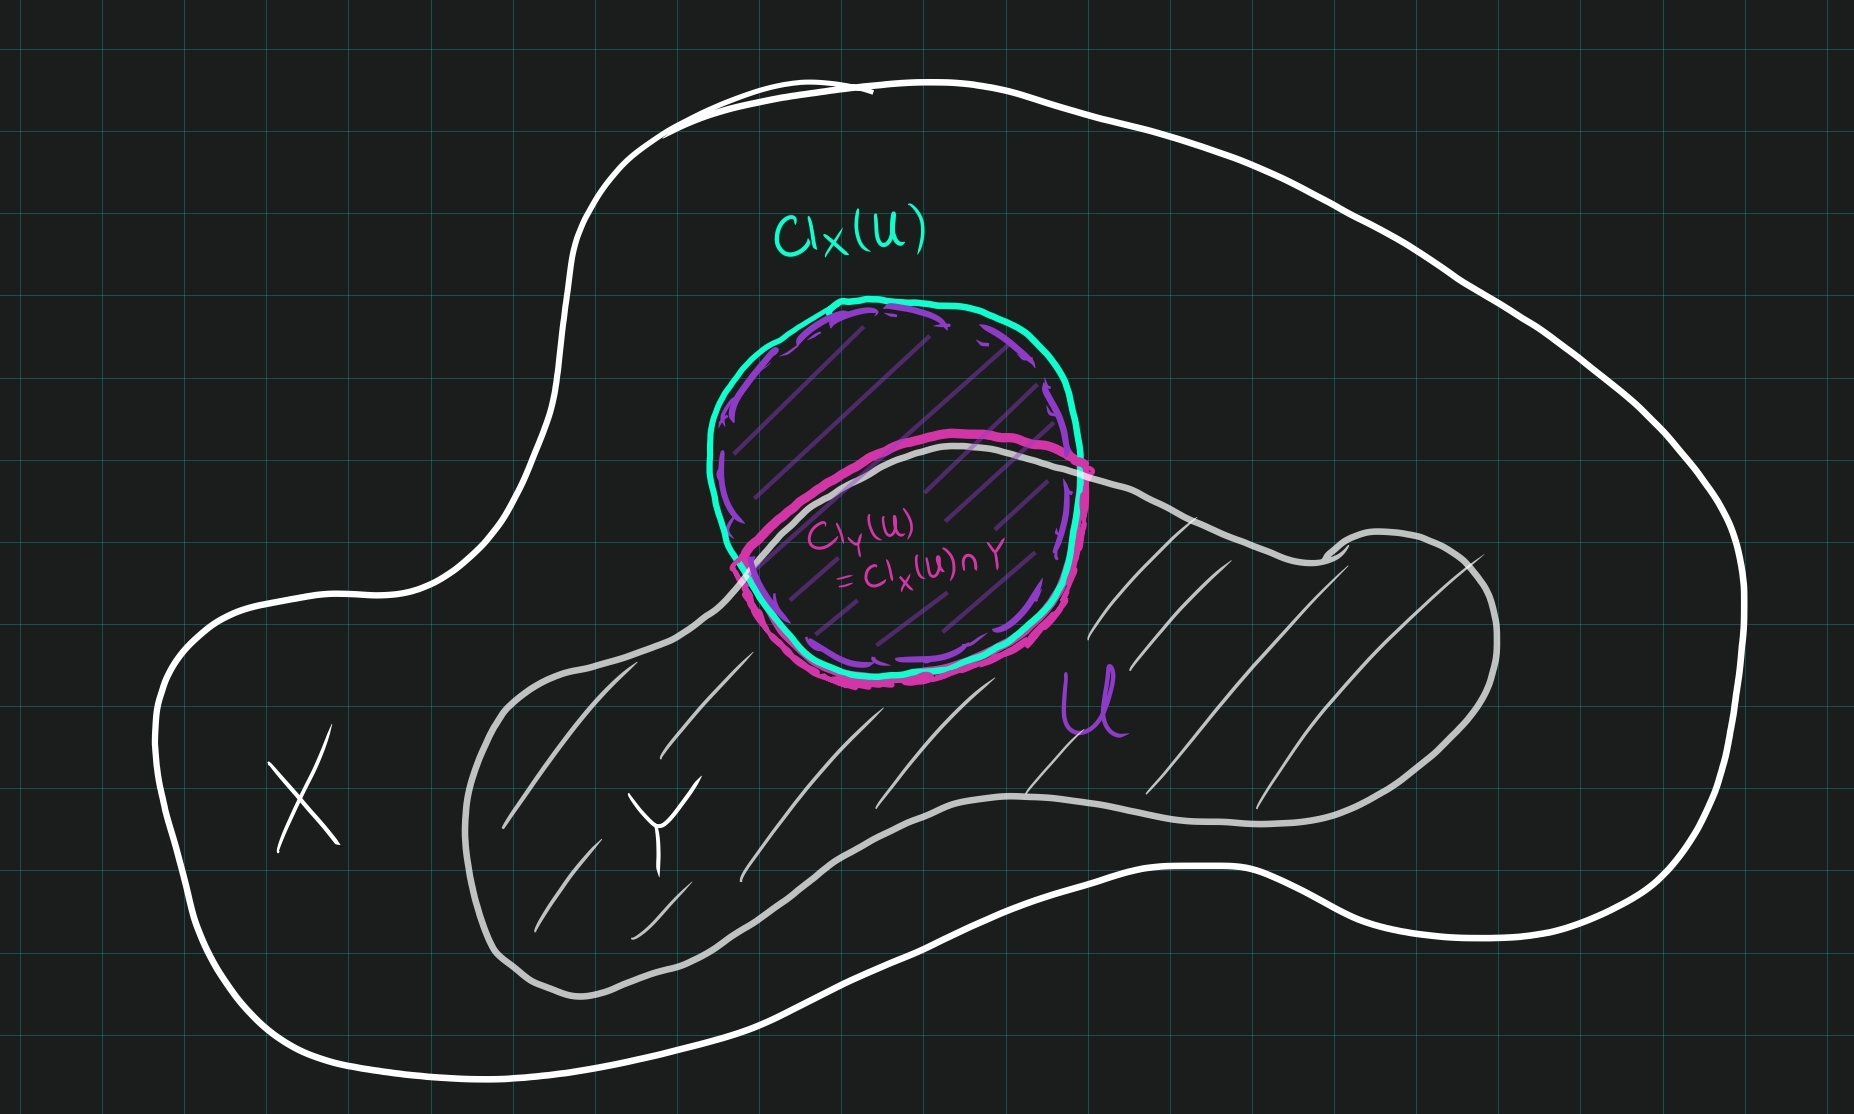 Cl_X(U)
Cl_Y(U)
= Cl_X(U) ∩ Y
U
X
Y